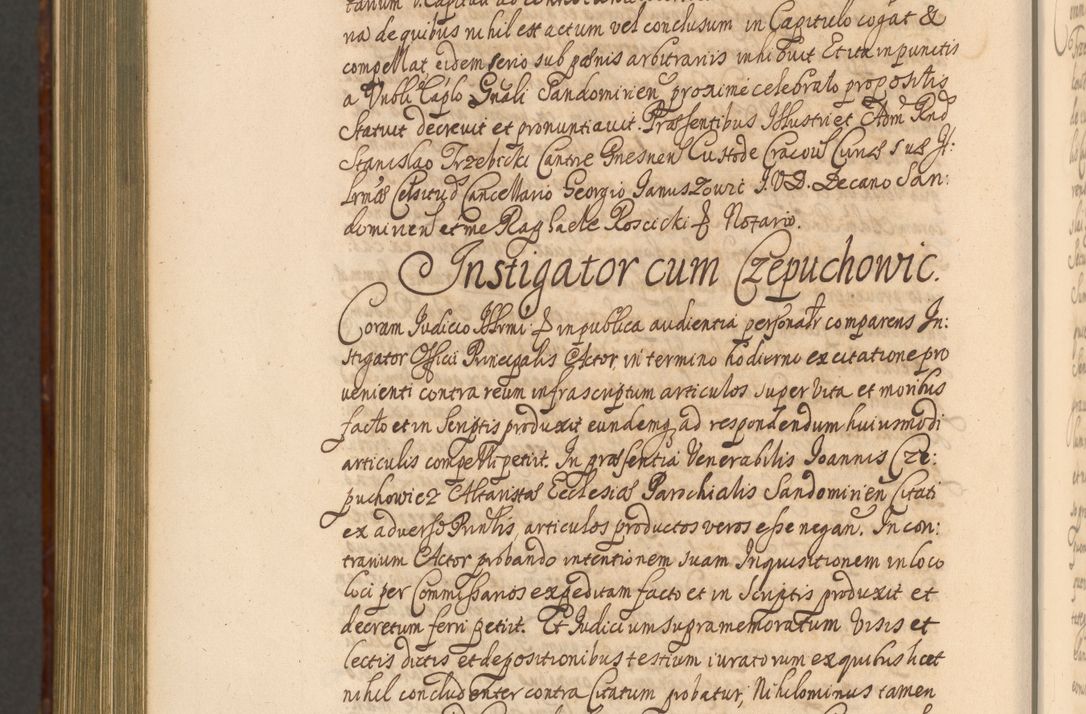 na de quibus nihil est actum vel conclusum in Capitulo cogat &
compellat, eidem serio sub pœnis arbitrariis inhibuit Et ita in punctis
a Vnbli Caplo Gnali Sandomirien proxime celebrato propositis
statuit decrevit et pronuntiavit. Præsentibus Illustri et Adm Rnd
Stanislao Trzebicki Cantre Gnesnen Custode Cracoui Curiæ Suæ Il:
Lrmæ Celsitud Cancellario Georgio Januszowic I.V.D. Decano San:
domirien et me Raphaele Roscicki Notario.
Instigator cum Czepuchowic.
Coram Judicio Illrmi in publica audientia personalr comparens In:
stigator Officii Principalis Actor, in termino hodierno ex citatione pro
venienti contra reum infrascriptum articulos super vita et moribus
facto et in scriptis produxit eundemq, ad respondendum huiusmodi
articulis compelli petiit. In præsentia Venerabilis Joannis Cze:
puchowicz Altaristæ Ecclesiæ Parochialis Sandomirien Citati
ex adverso Prinlis, articulos productos veros esse negan. In con:
trarium Actor probando intentionem suam Inquisitionem in loco
loci per Commissarios expeditam facto et in Scriptis produxit et
decretum ferri petiit. Et Judicium supramemoratum visis et
lectis dictis et depositionibus testium iuratorum ex quibus licet
nihil concludenter contra Citatum probatur, Nihilominus tamen